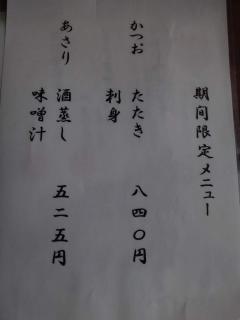 期間限定メニュー
かつお たたき 八四〇円
刺身
あさり 酒蒸し 五二五円
味噌汁